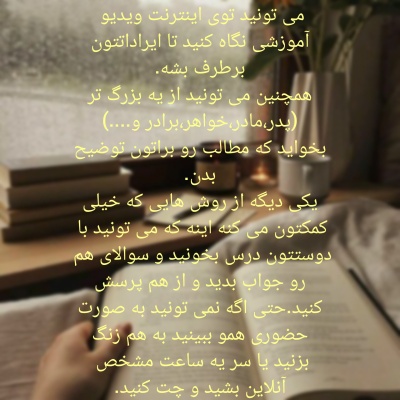 می تونید توی اینترنت ویدیو
آموزشی نگاه کنید تا ایراداتتون
برطرف بشه.
همچنین می تونید از یه بزرگ تر
(پدر،مادر،خواهر،برادر و....)
بخواید که مطالب رو براتون توضیح
بدن.
یکی دیگه از روش هایی که خیلی
کمکتون می کنه اینه که می تونید با
دوستتون درس بخونید و سوالای هم
رو جواب بدید و از هم پرسش
کنید.حتی اگه نمی تونید به صورت
حضوری همو ببینید به هم زنگ
بزنید یا سر یه ساعت مشخص
آنلاین بشید و چت کنید.